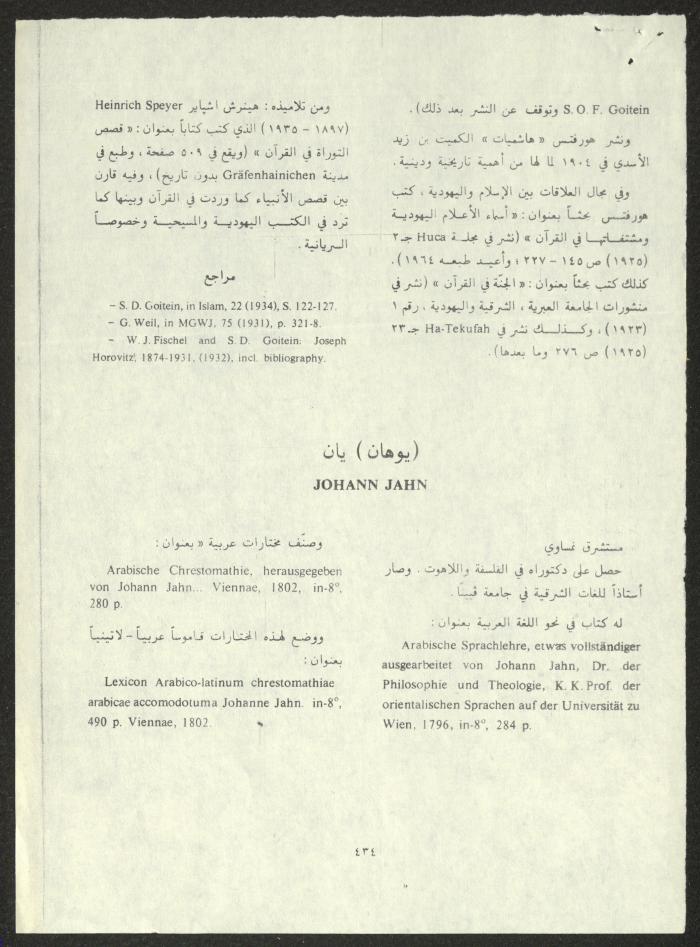 S. O. F. Goitein وتوقف عن النشر بعد ذلك) .
ونشر هورفتس « هاشميات » الكميت بن زيد
الأسدي في ١٩٠٤ لما لها من أهمية تاريخية ودينية .
وفي مجال العلاقات بين الإسلام واليهودية ، كتب
هورفتس بحثاً بعنوان : « أسماء الأعلام اليهودية
ومشتقاتها في القرآن » (نشر في مجلة Huca جـ ٢
(١٩٢٥) ص ١٤٥ – ٢٢٧ ؛ وأعيد طبعه ١٩٦٤) .
كذلك كتب بحثاً بعنوان : « الجنّة في القرآن » (نشر في
منشورات الجامعة العبرية ، الشرقية واليهودية . رقم ١
(١٩٢٣) ، وكذلك نشر في Ha-Tekufah جـ ٢٣
(١٩٢٥) ص ٢٧٦ وما بعدها) .
ومن تلاميذه : هينرش اشپاير Heinrich Speyer
(١٨٩٧ – ١٩٣٥) الذي كتب كتاباً بعنوان : « قصص
التوراة في القرآن » (ويقع في ٥٠٩ صفحة ، وطبع في
مدينة Gräfenhainichen بدون تاريخ) ، وفيه قارن
بين قصص الأنبياء كما وردت في القرآن وبينها كما
ترد في الكتب اليهودية والمسيحية وخصوصاً
السريانية .
مراجع
– S. D. Goitein, in Islam, 22 (1934), S. 122-127.
– G. Weil, in MGWJ, 75 (1931), p. 321-8.
– W. J. Fischel and S. D. Goitein: Joseph
Horovitz, 1874-1931, (1932), incl. bibliography.
(يوهان) يان
JOHANN JAHN
مستشرق نمساوي
حصل على دكتوراه في الفلسفة واللاهوت . وصار
أستاذاً للغات الشرقية في جامعة ڤيينا .
له كتاب في نحو اللغة العربية بعنوان :
Arabische Sprachlehre, etwas vollständiger
ausgearbeitet von Johann Jahn, Dr. der
Philosophie und Theologie, K. K. Prof. der
orientalischen Sprachen auf der Universität zu
Wien, 1796, in-8°, 284 p.
وصنّف مختارات عربية « بعنوان :
Arabische Chrestomathie, herausgegeben
von Johann Jahn... Viennae, 1802, in-8°,
280 p.
ووضع لهذه المختارات قاموساً عربياً – لاتينياً
بعنوان :
Lexicon Arabico-latinum chrestomathiae
arabicae accomodotuma Johanne Jahn. in-8°,
490 p. Viennae, 1802.
٤٣٤